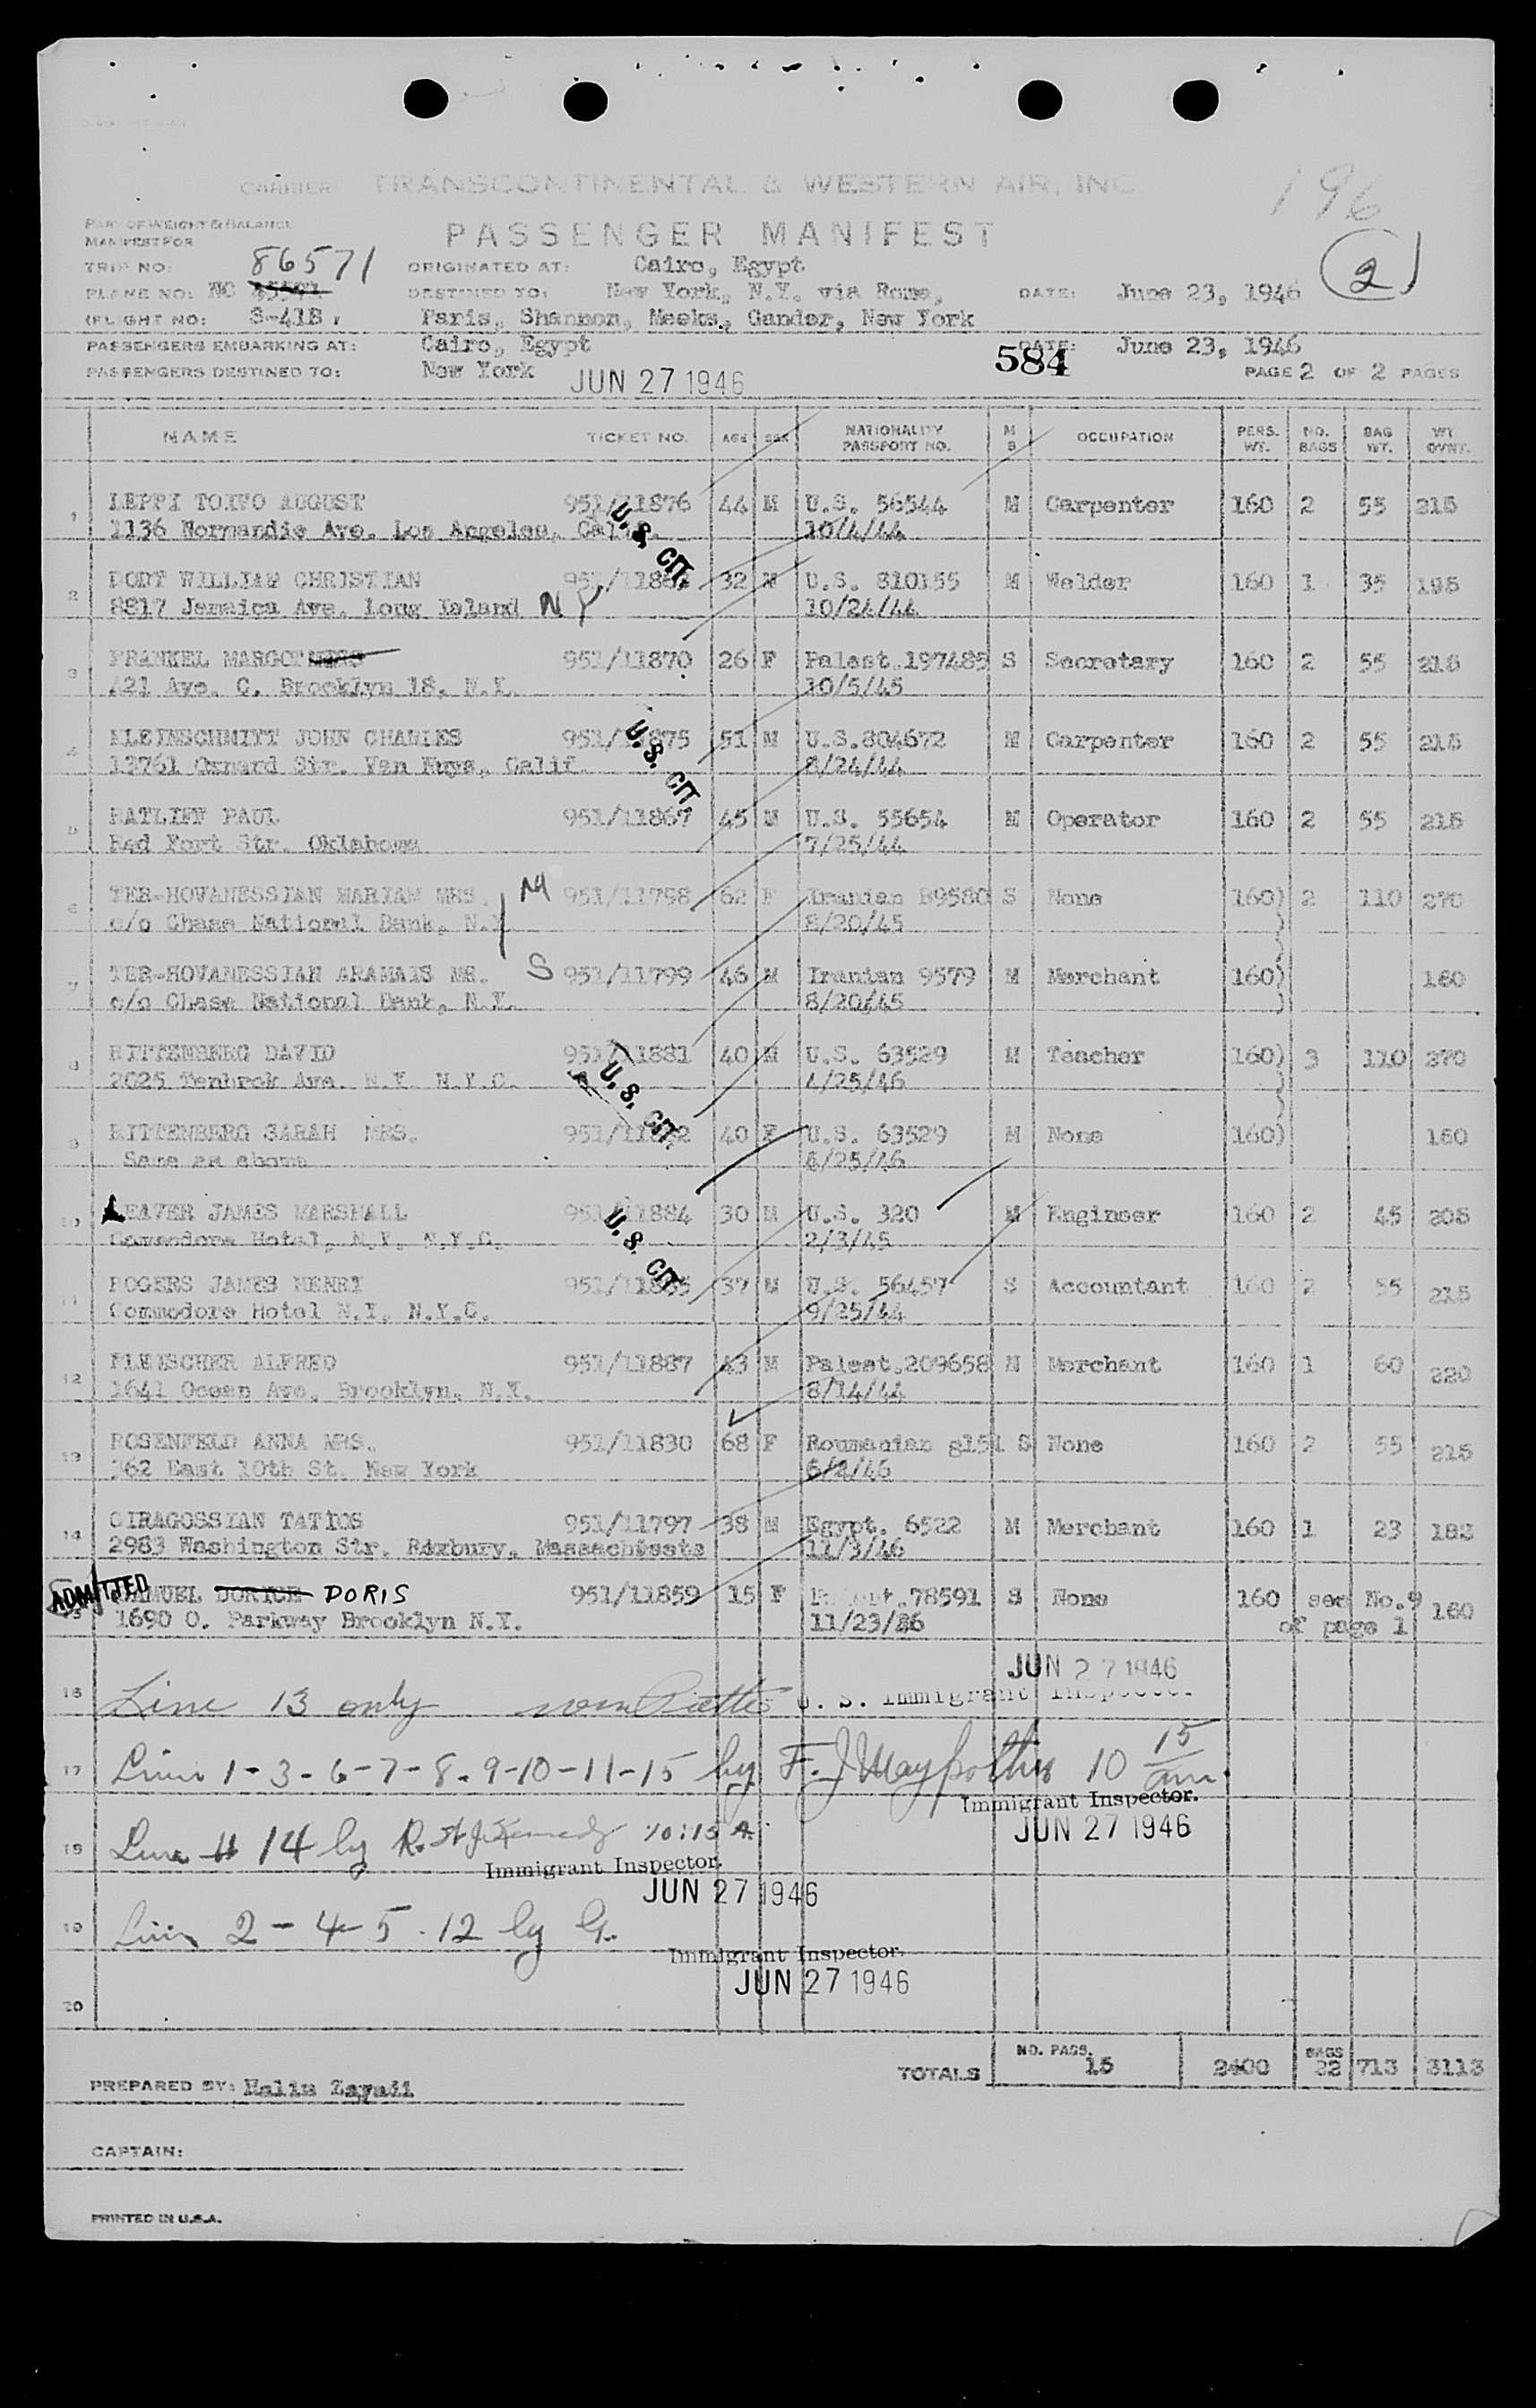 196
CARRIER: TRANSCONTINENTAL & WESTERN AIR, INC.
PART OF WEIGHT & BALANCE
MANIFEST FOR
PASSENGER MANIFEST
TRIP NO: 86571 ORIGINATED AT: Cairo, Egypt
PLANE NO: NC DESTINED TO: New York, N.Y. via Rome, DATE: June 23, 1946 2
(FLIGHT NO: S-41B, Paris, Shannon, Meeks, Gander, New York
PASSENGERS EMBARKING AT: Cairo, Egypt DATE: June 23, 1946
584
PASSENGERS DESTINED TO: New York JUN 27 1946 PAGE 2 OF 2 PAGES
NAME TICKET NO. AGE SEX NATIONALITY PASSPORT NO. M S OCCUPATION PERS. WT. NO. BAGS BAG WT. WT.
1 LEPPI TOIVO AUGUST 951/11876 44 M U.S. 56544 M Carpenter 160 2 55 215
1136 Normandie Ave. Los Angeles, Calif. 10/4/44
U.S. CIT.
2 WILLIAM CHRISTIAN 32 M U.S. 810155 M Welder 160 1 35 195
8817 Jamaica Ave. Long Island N Y 10/24/44
3 FRANKEL MARGOT 951/11870 26 F Palest.197485 S Secretary 160 2 55 215
421 Ave. C. Brooklyn 18, N.Y. 10/5/45
4 KLEINSCHMITT JOHN CHARLES 951/11875 51 M U.S.804672 M Carpenter 160 2 55 215
12761 Oxnard Str. Van Nuys, Calif. 8/24/44
U.S. CIT.
5 RATLIFF PAUL 951/11867 45 M U.S. 55654 M Operator 160 2 55 215
Red Fort Str. Oklahoma 7/25/44
6 TER-HOVANESSIAN MARIAM MRS. M 951/11798 62 F Iranian 89580 S None 160) 2 110 270
c/o Chase National Bank, N.Y. 8/20/45
7 TER-HOVANESSIAN ARAMAIS MR. S 951/11799 46 M Iranian 9579 M Merchant 160) 160
c/o Chase National Bank, N.Y. 8/20/45
8 RITTENBERG DAVID 951/11881 40 M U.S. 63529 M Teacher 160) 3 110 270
2025 Tenbrok Ave. N.Y. N.Y.C. 4/25/46
U.S. CIT.
9 RITTENBERG SARAH MRS. 951/11882 40 F U.S. 63529 M None 160) 160
Same as above 4/25/46
10 LEAVER JAMES MARSHALL 951/11884 30 M U.S. 320 M Engineer 160 2 45 205
Commodore Hotel, N.Y. N.Y.C. 2/3/45
U.S. CIT.
11 ROGERS JAMES HENRY 951/11885 37 M U.S. 56457 S Accountant 160 2 55 215
Commodore Hotel N.Y. N.Y.C. 9/25/44
12 FLEISCHER ALFRED 951/11887 43 M Palest.209658 M Merchant 160 1 60 220
1641 Ocean Ave. Brooklyn, N.Y. 8/14/44
13 ROSENFELD ANNA MRS. 951/11830 68 F Roumanian 8151 S None 160 2 55 215
362 East 10th St. New York 6/2/46
14 GIRAGOSSIAN TATIOS 951/11797 38 M Egypt. 6522 M Merchant 160 1 23 183
2983 Washington Str. Roxbury, Massachusetts 11/3/46
ADMITTED
15 SAMUEL DORICE DORIS 951/11859 15 F Palest.78591 S None 160 see No.9 160
1690 O. Parkway Brooklyn N.Y. 11/23/36 of page 1
JUN 27 1946
16 Line 13 only U. S. Immigrant Inspector
17 Lines 1-3-6-7-8-9-10-11-15 by F. J. 10 15 am.
Immigrant Inspector.
JUN 27 1946
18 Line # 14 by R. St J. Kennedy 10:15 A.
Immigrant Inspector.
JUN 27 1946
19 Lines 2-4-5-12 by
Immigrant Inspector.
JUN 27 1946
20
TOTALS NO. PASS. 15 2400 BAGS 22 713 3113
PREPARED BY: Halim Zayadi
CAPTAIN:
PRINTED IN U.S.A.